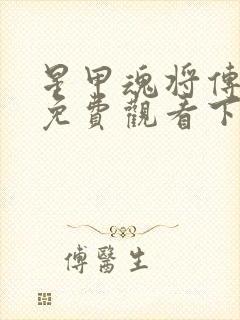 星甲魂将傳
免費觀看下
傅醫生